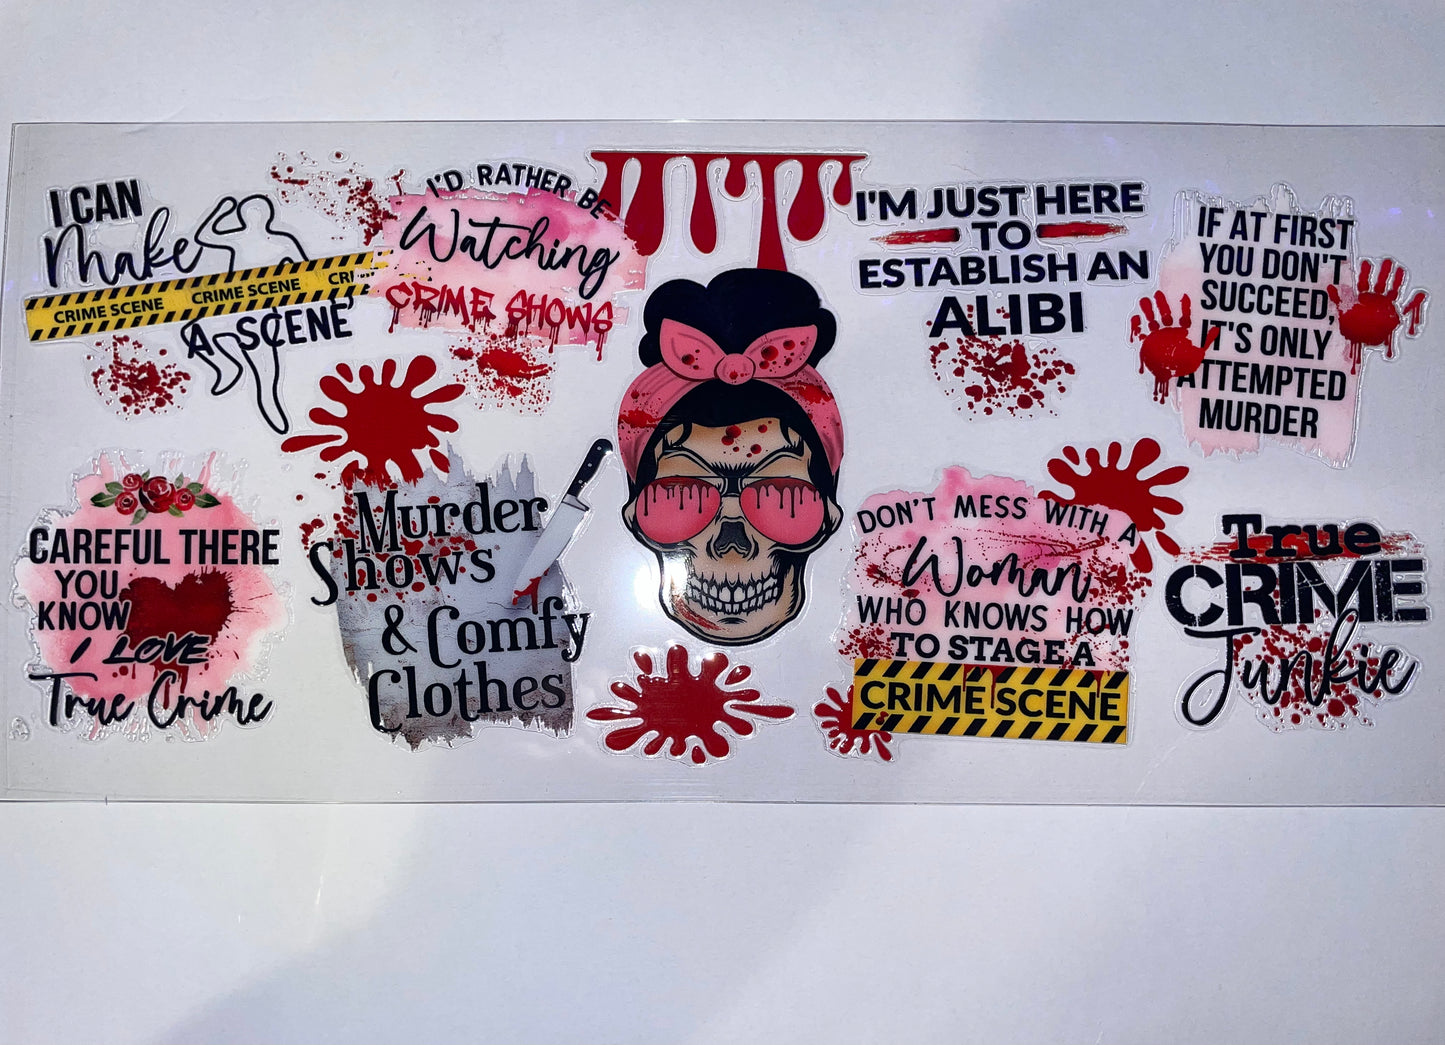 I CAN
Make
CRIME SCENE CRIME SCENE CRI
A SCENE
I'D RATHER BE
Watching
CRIME SHOWS
I'M JUST HERE
TO
ESTABLISH AN
ALIBI
IF AT FIRST
YOU DON'T
SUCCEED,
IT'S ONLY
ATTEMPTED
MURDER
CAREFUL THERE
YOU
KNOW
I LOVE
True Crime
Murder
Shows
& Comfy
Clothes
DON'T MESS WITH A
Woman
WHO KNOWS HOW
TO STAGE A
CRIME SCENE
True
CRIME
Junkie